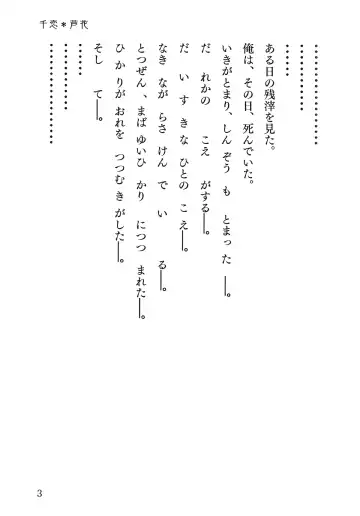 千恋＊芦花
・・・・・・・・・・・・・・・・
・・・・・・・・・・・
・・・・・・
ある日の残滓を見た。
俺は、その日、死んでいた。
いきがとまり、しんぞう も とまった ――。
だ れかの こえ がする――。
だ いすき な ひとの こえ――。
なき なが らさ けん で い る――。
とつぜん、まば ゆいひ かり につつ まれた――。
ひ かり が おれを つつむき がした――。
そし て――。
・・・・・・
・・・・・・・・・・・
・・・・・・・・・・・・・・・・
3